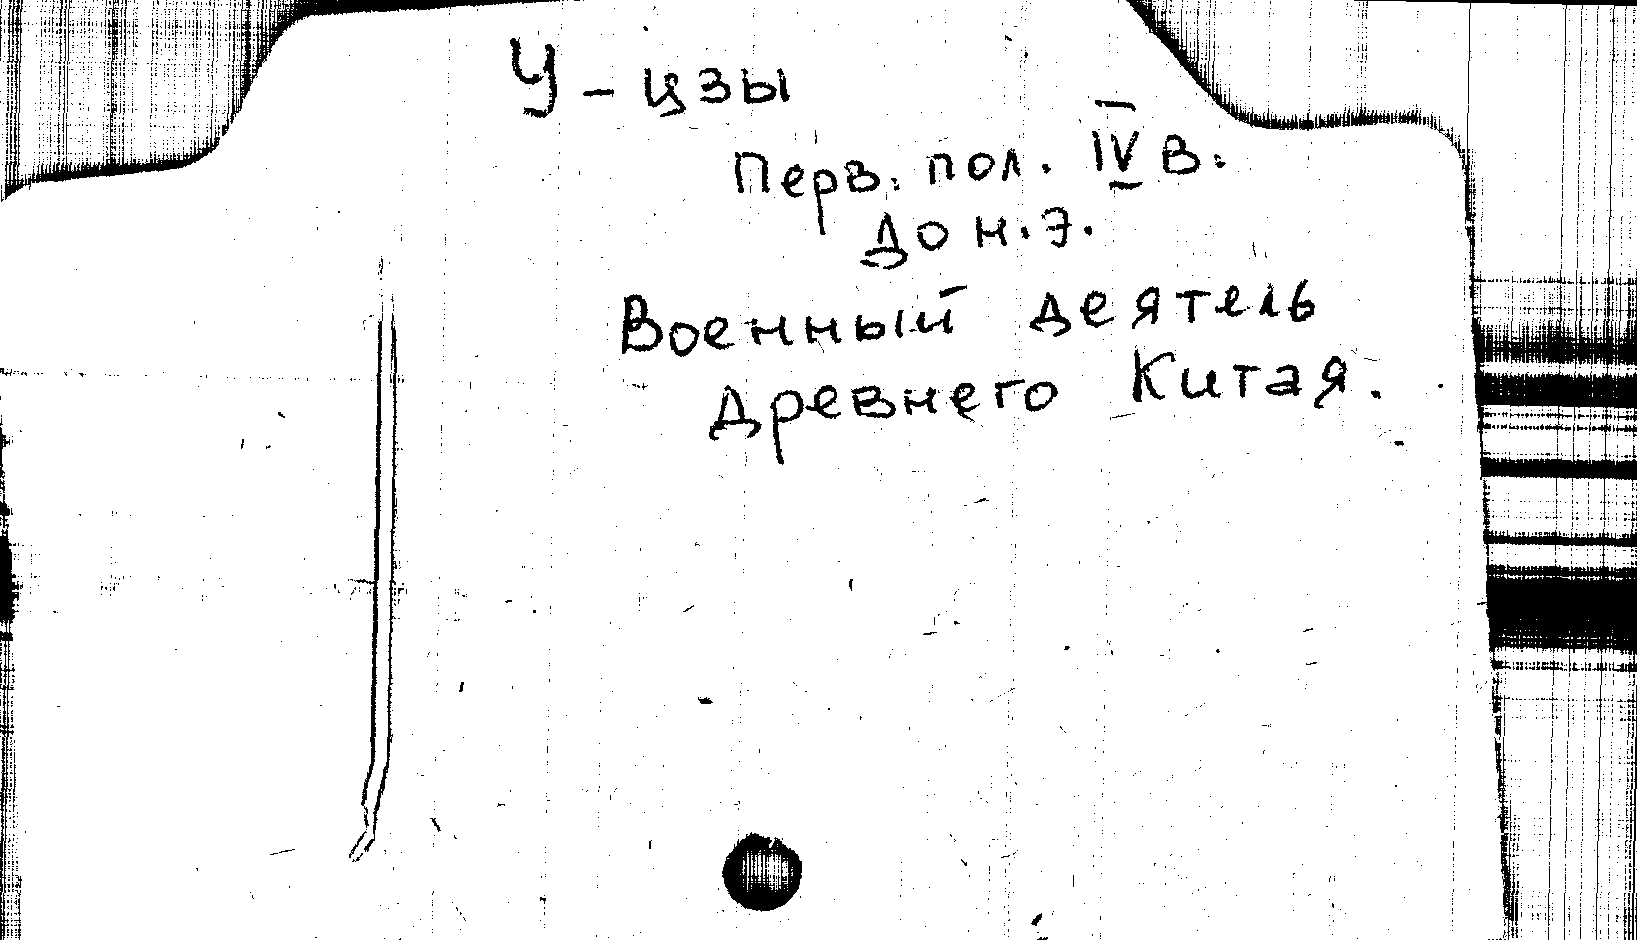 У-цзы
Перв. пол. IV в.
до н.э.
Военный деятель
древнего Китая.